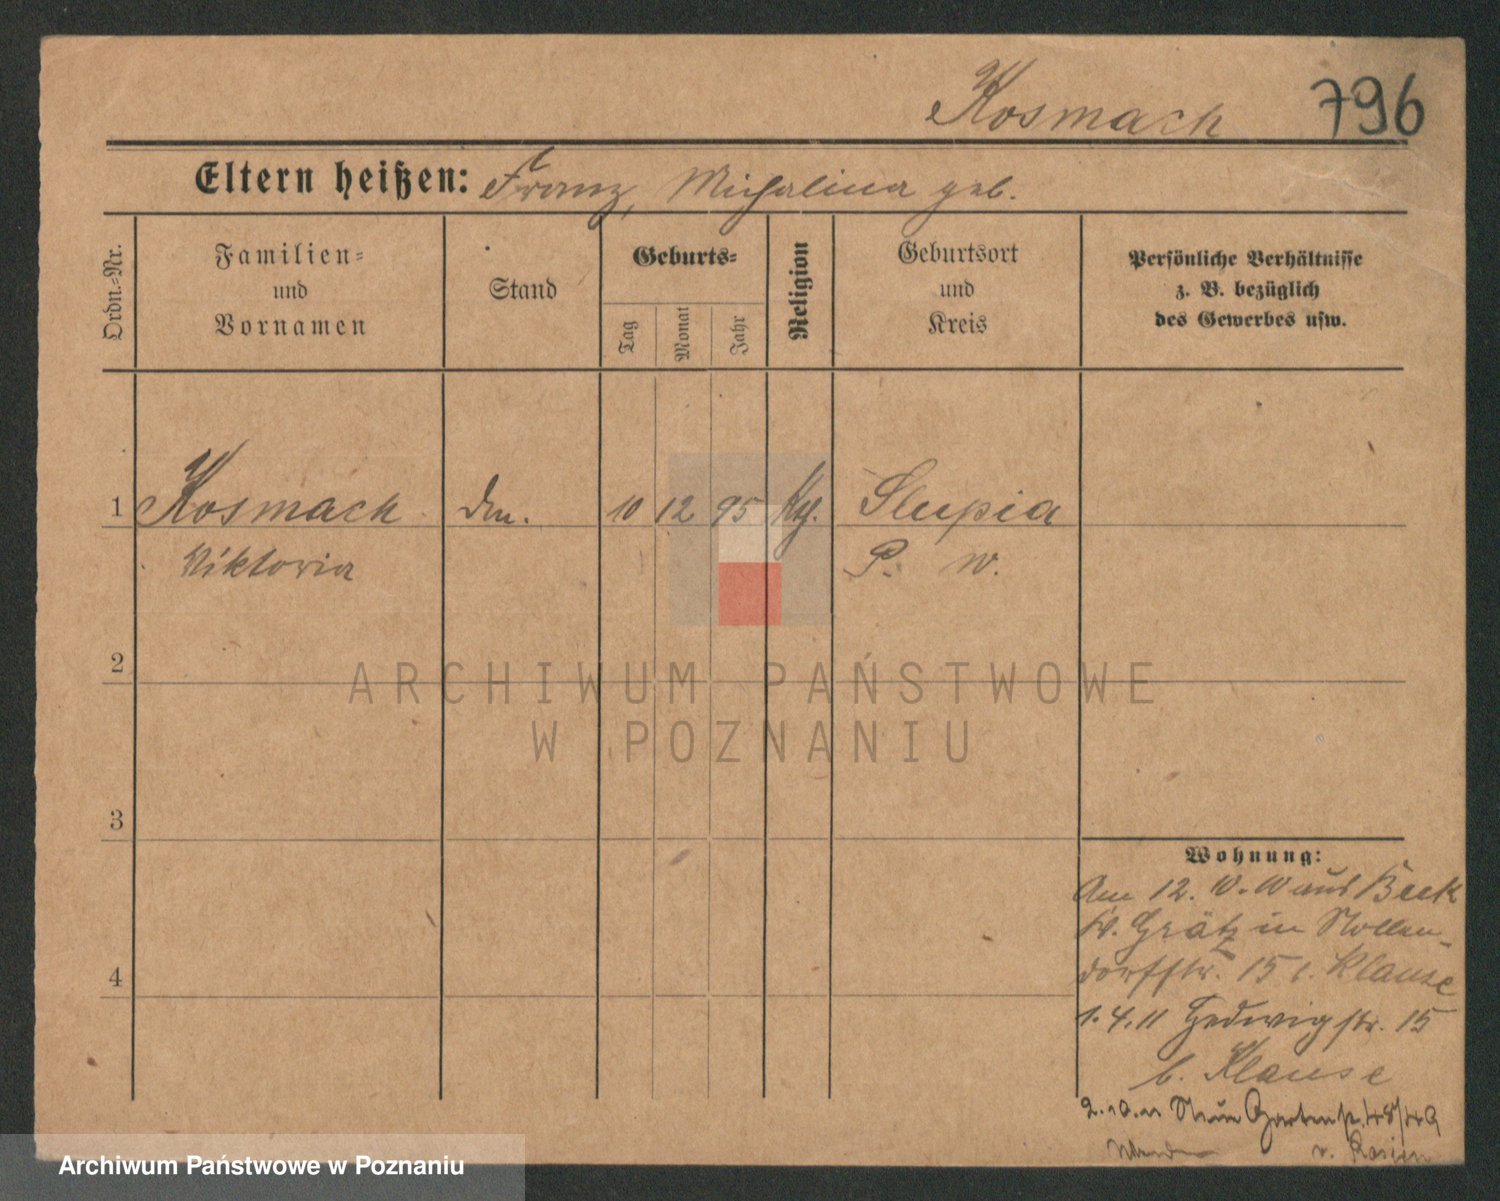 Kosmach 796
Eltern heißen: Franz, Michalina geb.
Ordn.-Nr.
Familien-
und
Vornamen
Stand
Geburts-
Tag
Monat
Jahr
Religion
Geburtsort
und
Kreis
Persönliche Verhältnisse
z. B. bezüglich
des Gewerbes usw.
1 Kosmach 10 12 95 Kth. Slupia
Viktoria P. W.
2
3
4
Wohnung:
Am 12. 10. 10 aus
Grätz in Nollen-
dorfstr. 15 b. Klause
1.4.11 Hedwigstr. 15
b. Klause
2.10.11 Neue Gartenstr. 48/49
ARCHIWUM PAŃSTWOWE
W POZNANIU
Archiwum Państwowe w Poznaniu